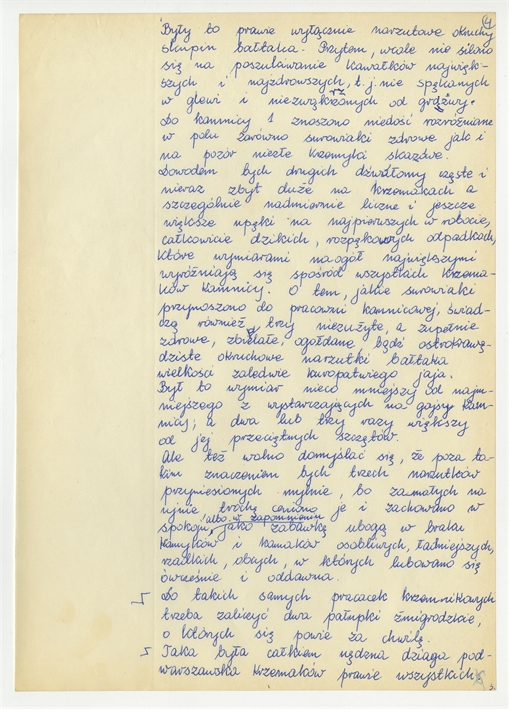 4
Były to prawie wyłącznie narzutowe okruchy
skupin bałtaka. Przytem, wcale nie silono
się na poszukiwanie kawałków najwięk-
szych i najzdrowszych, t.j. nie spękanych
w głowi i niezwiąkrzonych od grdźwy.
rz
Do kamnicy 1 znoszono niedość rozróżniane
w polu zarówno surowiaki zdrowe jak i
na pozór niezłe krzemyki skazowe.
Dowodem tych drugich dźwałomy częste i
nieraz zbyt duże na krzemakach a
szczególnie nadmiernie liczne i jeszcze
większe upęki na najpierwszych w robocie,
całkowicie dzikich, rozpękowych odpadkach,
które wymiarami naogół największymi
wyróżniają się spośród wszystkich krzema-
ków kamnicy. O tem, jakie surowiaki
przynoszono do pracowni kamnicowej, świad-
czą również trzy niezużyte, a zupełnie
zdrowe, zbielałe, ogołdane, bądź ostrokrawę-
dziste okruchowe narzutki bałtaka
wielkości zaledwie kuropatwiego jaja.
Był to wymiar nieco mniejszy od najm-
niejszego z wystarczających na gajsy kam-
nicy; a dwa lub trzy razy większy
od jej przeciętnych szczętów.
Ale też wolno domyślać się, że poza ta-
kim znaczeniem tych trzech narzutków
przyniesionych mylnie, bo zamałych na
ujnie trochę ceniono je i zachowano w
albo w zapomnieniu
spokoju, jako zabawkę ubogą w braku
kamyków i kamaków osobliwych, ładniejszych,
rzadkich, obcych, w których lubowano się
ówcześnie i oddawna.
Do takich samych pracacek krzemnikowych
trzeba zaliczyć dwa pałupki żmigrodzkie,
o których się powie za chwilę.
Taka była całkiem nędzna dziaga pod-
warszawska krzemaków prawie wszystkich